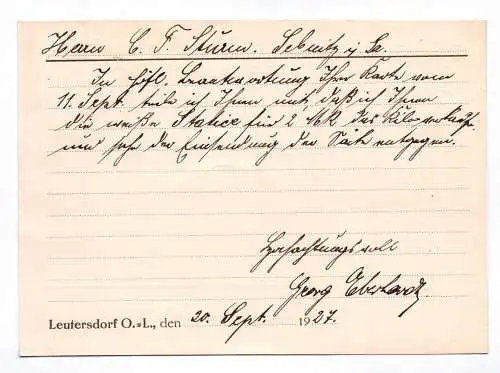 Herrn C. F. Sturm. Sebnitz i/ Sa.
In höfl. Beantwortung Ihrer Karte vom
11. Sept. teile ich Ihnen mit daß ich Ihnen
die weiße Statice für 2 Mk das Kilo verkaufe
und sehe der Einsendung der Säcke entgegen.
Hochachtungsvoll
Georg Eberhardt.
Leutersdorf O.=L., den 20. Sept. 1927.